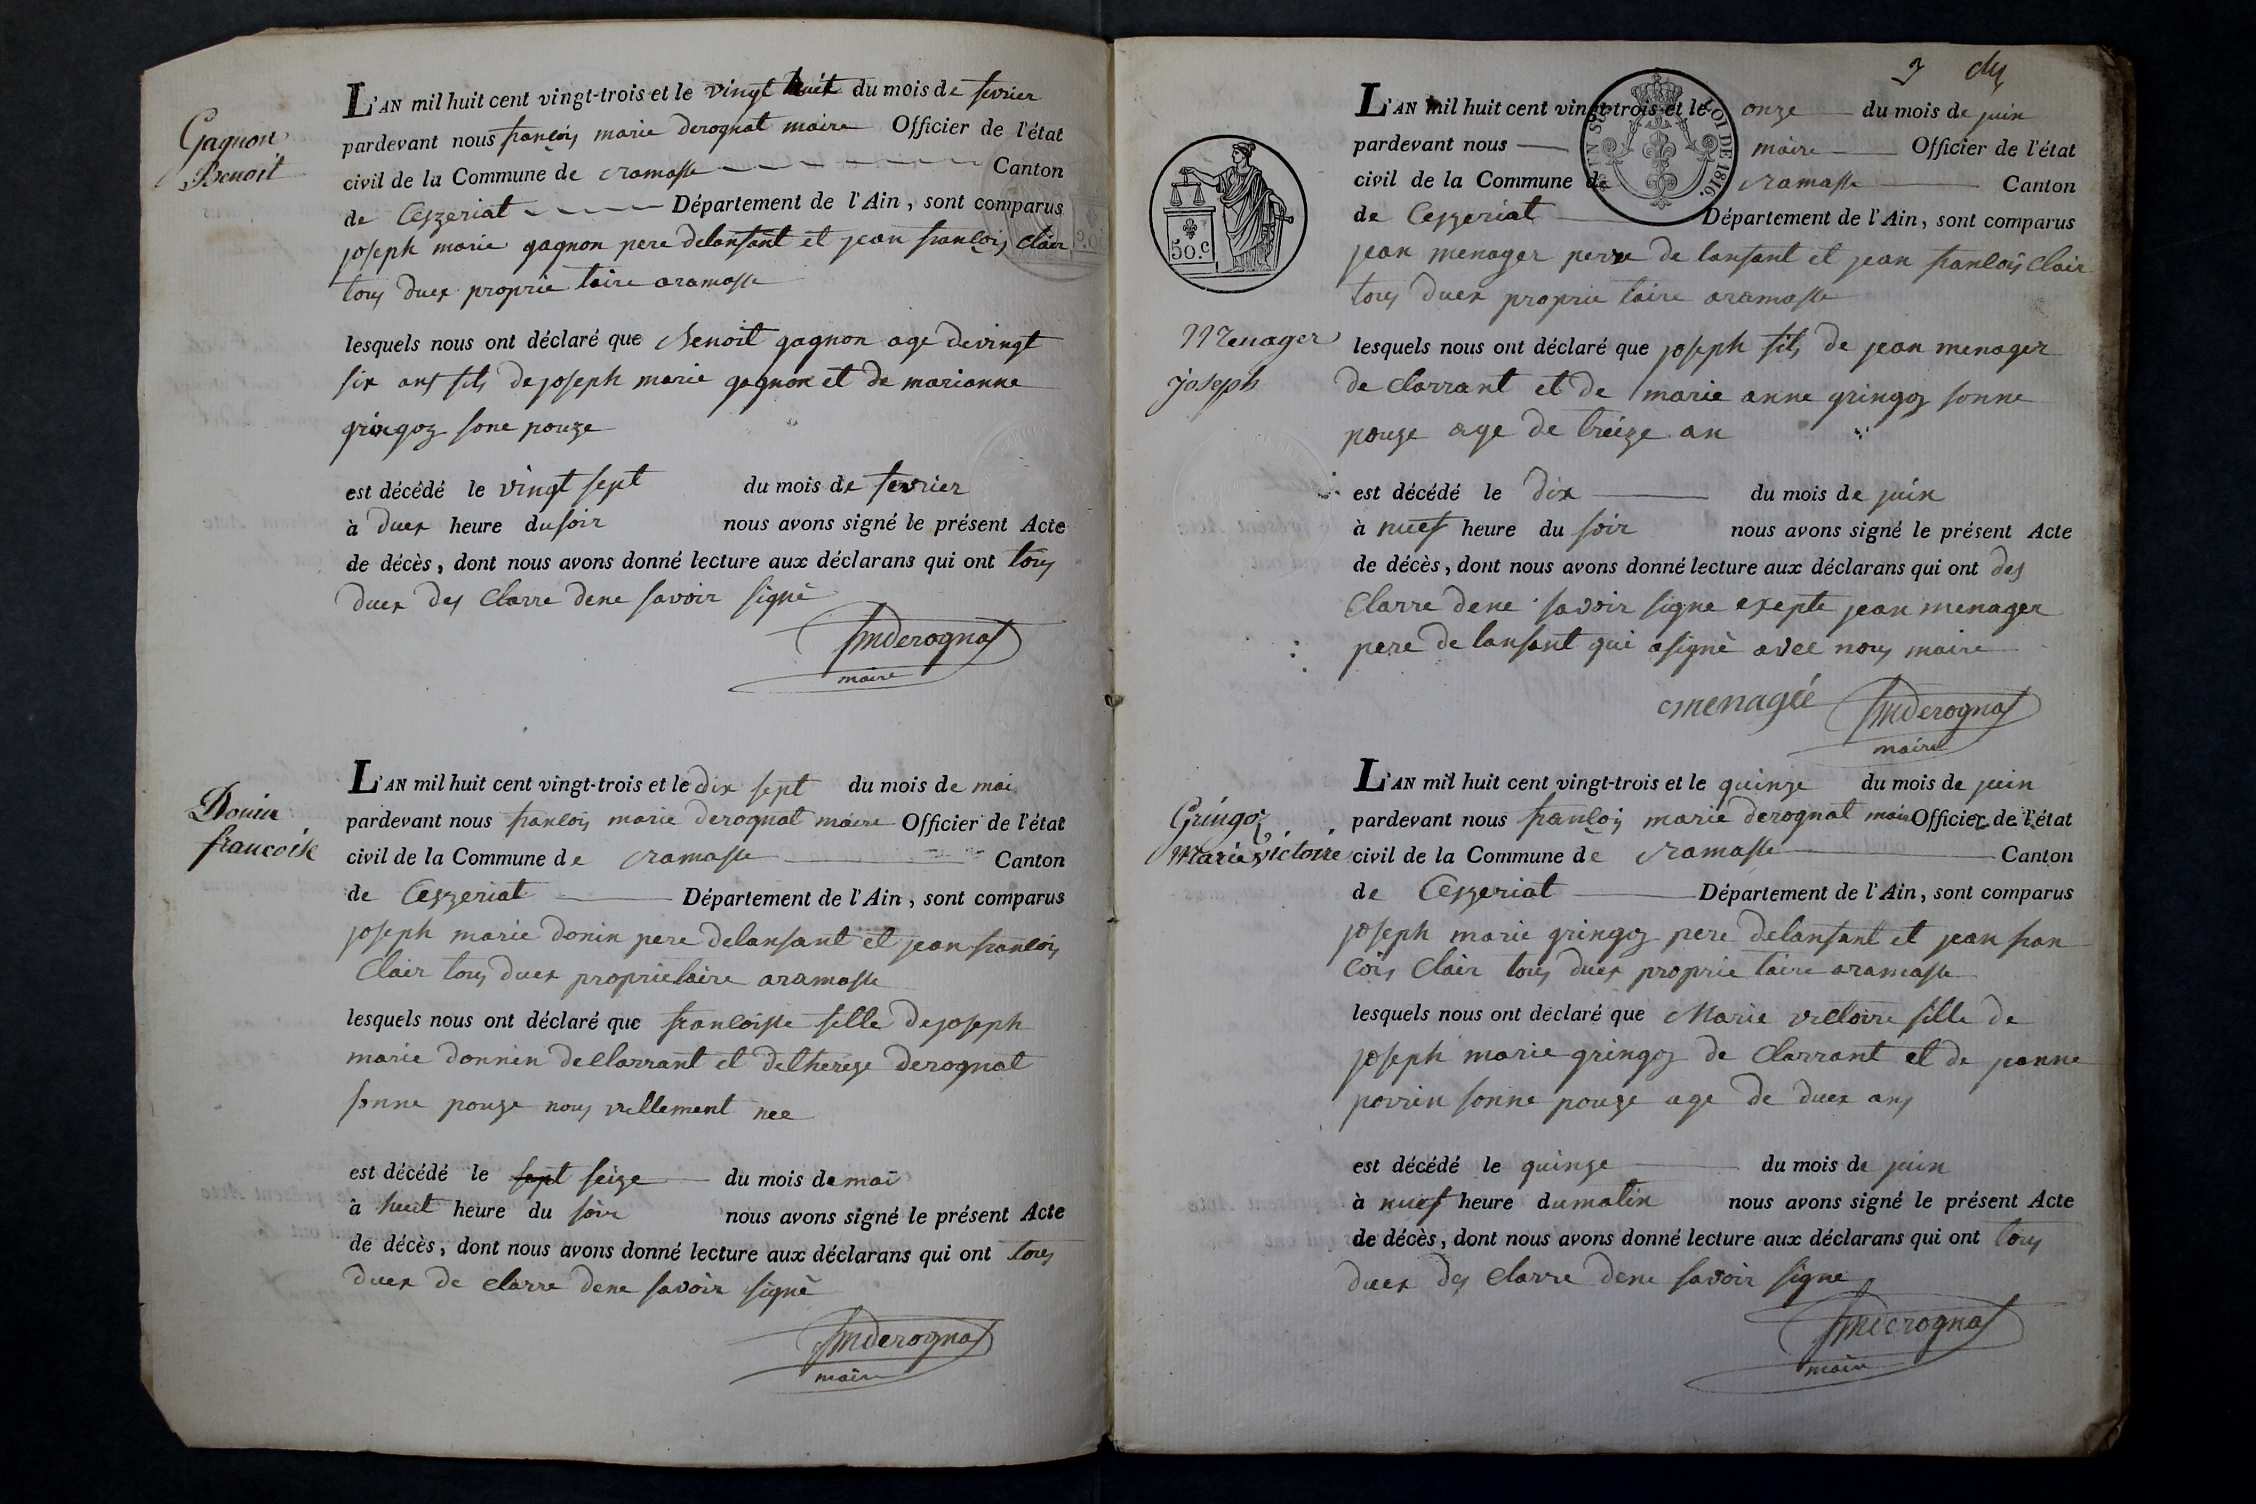 Gagnon
Benoit
L'AN mil huit cent vingt-trois et le vingt huit du mois de fevrier
pardevant nous françois marie derognat maire Officier de l'état
civil de la Commune de ramasse Canton
de Ceyzeriat Département de l'Ain, sont comparus
joseph marie gagnon pere delanfant et jean françois Clair
tous duex proprie taire aramasse
lesquels nous ont déclaré que Benoit gagnon age devingt
six ans fils de joseph marie gagnon et de marianne
gringoz sone pouze
est décédé le vingt sept du mois de fevrier
à duex heure dusoir nous avons signé le présent Acte
de décès, dont nous avons donné lecture aux déclarans qui ont tous
duex des Clarre dene savoir signè
fmderognat
maire
Donin
francoise
L'AN mil huit cent vingt-trois et le dix sept du mois de mai
pardevant nous francois marie derognat maire Officier de l'état
civil de la Commune de ramasse Canton
de Ceyzeriat Département de l'Ain, sont comparus
joseph marie donin pere delanfant et jean francois
Clair tous duex proprietaire aramasse
lesquels nous ont déclaré que francoisse fille de joseph
marie donnin declarrant et detherese derognat
sonne pouze nous vellement nee
est décédé le sept seize du mois de mai
à huit heure du soir nous avons signé le présent Acte
de décès, dont nous avons donné lecture aux déclarans qui ont tous
duex de clarre dene savoir signè
fmderognat
maire
3
L'AN mil huit cent vingt-trois et le onze du mois de juin
LOI DE 1816.
pardevant nous maire Officier de l'état
civil de la Commune de ramasse Canton
de Ceyzeriat Département de l'Ain, sont comparus
50.c
jean menager perre de lanfant et jean francois Clair
tous duex proprie taire aramasse
Menager
joseph
lesquels nous ont déclaré que joseph fils de jean menager
de clarrant et de marie anne gringoz sonne
pouze age de treize an
est décédé le dix du mois de juin
à nuef heure du soir nous avons signé le présent Acte
de décès, dont nous avons donné lecture aux déclarans qui ont des
Clarre dene savoir signe exepte jean menager
pere de lanfant qui asignè avec nous maire
menagée fmderognat
maire
Gringoz
Marie victoire
L'AN mil huit cent vingt-trois et le quinze du mois de juin
pardevant nous françois marie derognat maire Officier de l'état
civil de la Commune de ramasse Canton
de Ceyzeriat Département de l'Ain, sont comparus
joseph marie gringoz pere delanfant et jean fran
cois Clair tous duex proprie taire aramasse
lesquels nous ont déclaré que Marie victoire fille de
joseph marie gringoz de Clarrant et de janne
povrin sonne pouze age de duex ans
est décédé le quinze du mois de juin
à nuef heure dumatin nous avons signé le présent Acte
de décès, dont nous avons donné lecture aux déclarans qui ont tous
duex des Clarre dene savoir signe
fmderognat
maire